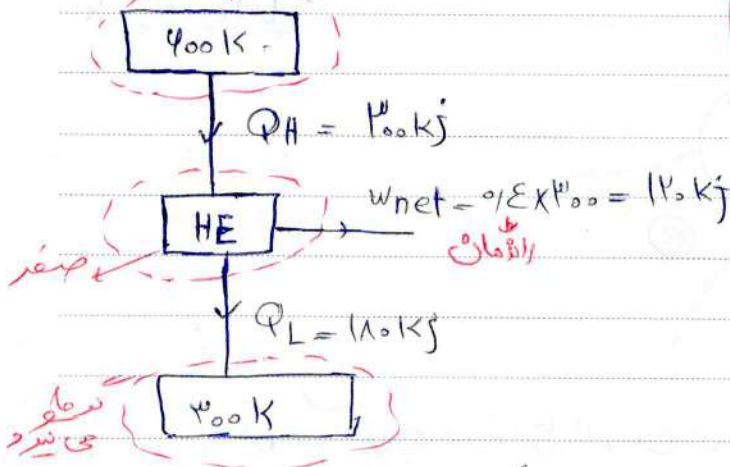 ۶۰۰ K
QH = ۳۰۰ kj
wnet = ۰/۴ × ۳۰۰ = ۱۲۰ kj
HE
راندمان
صفر
QL = ۱۸۰ kj
۳۰۰ K